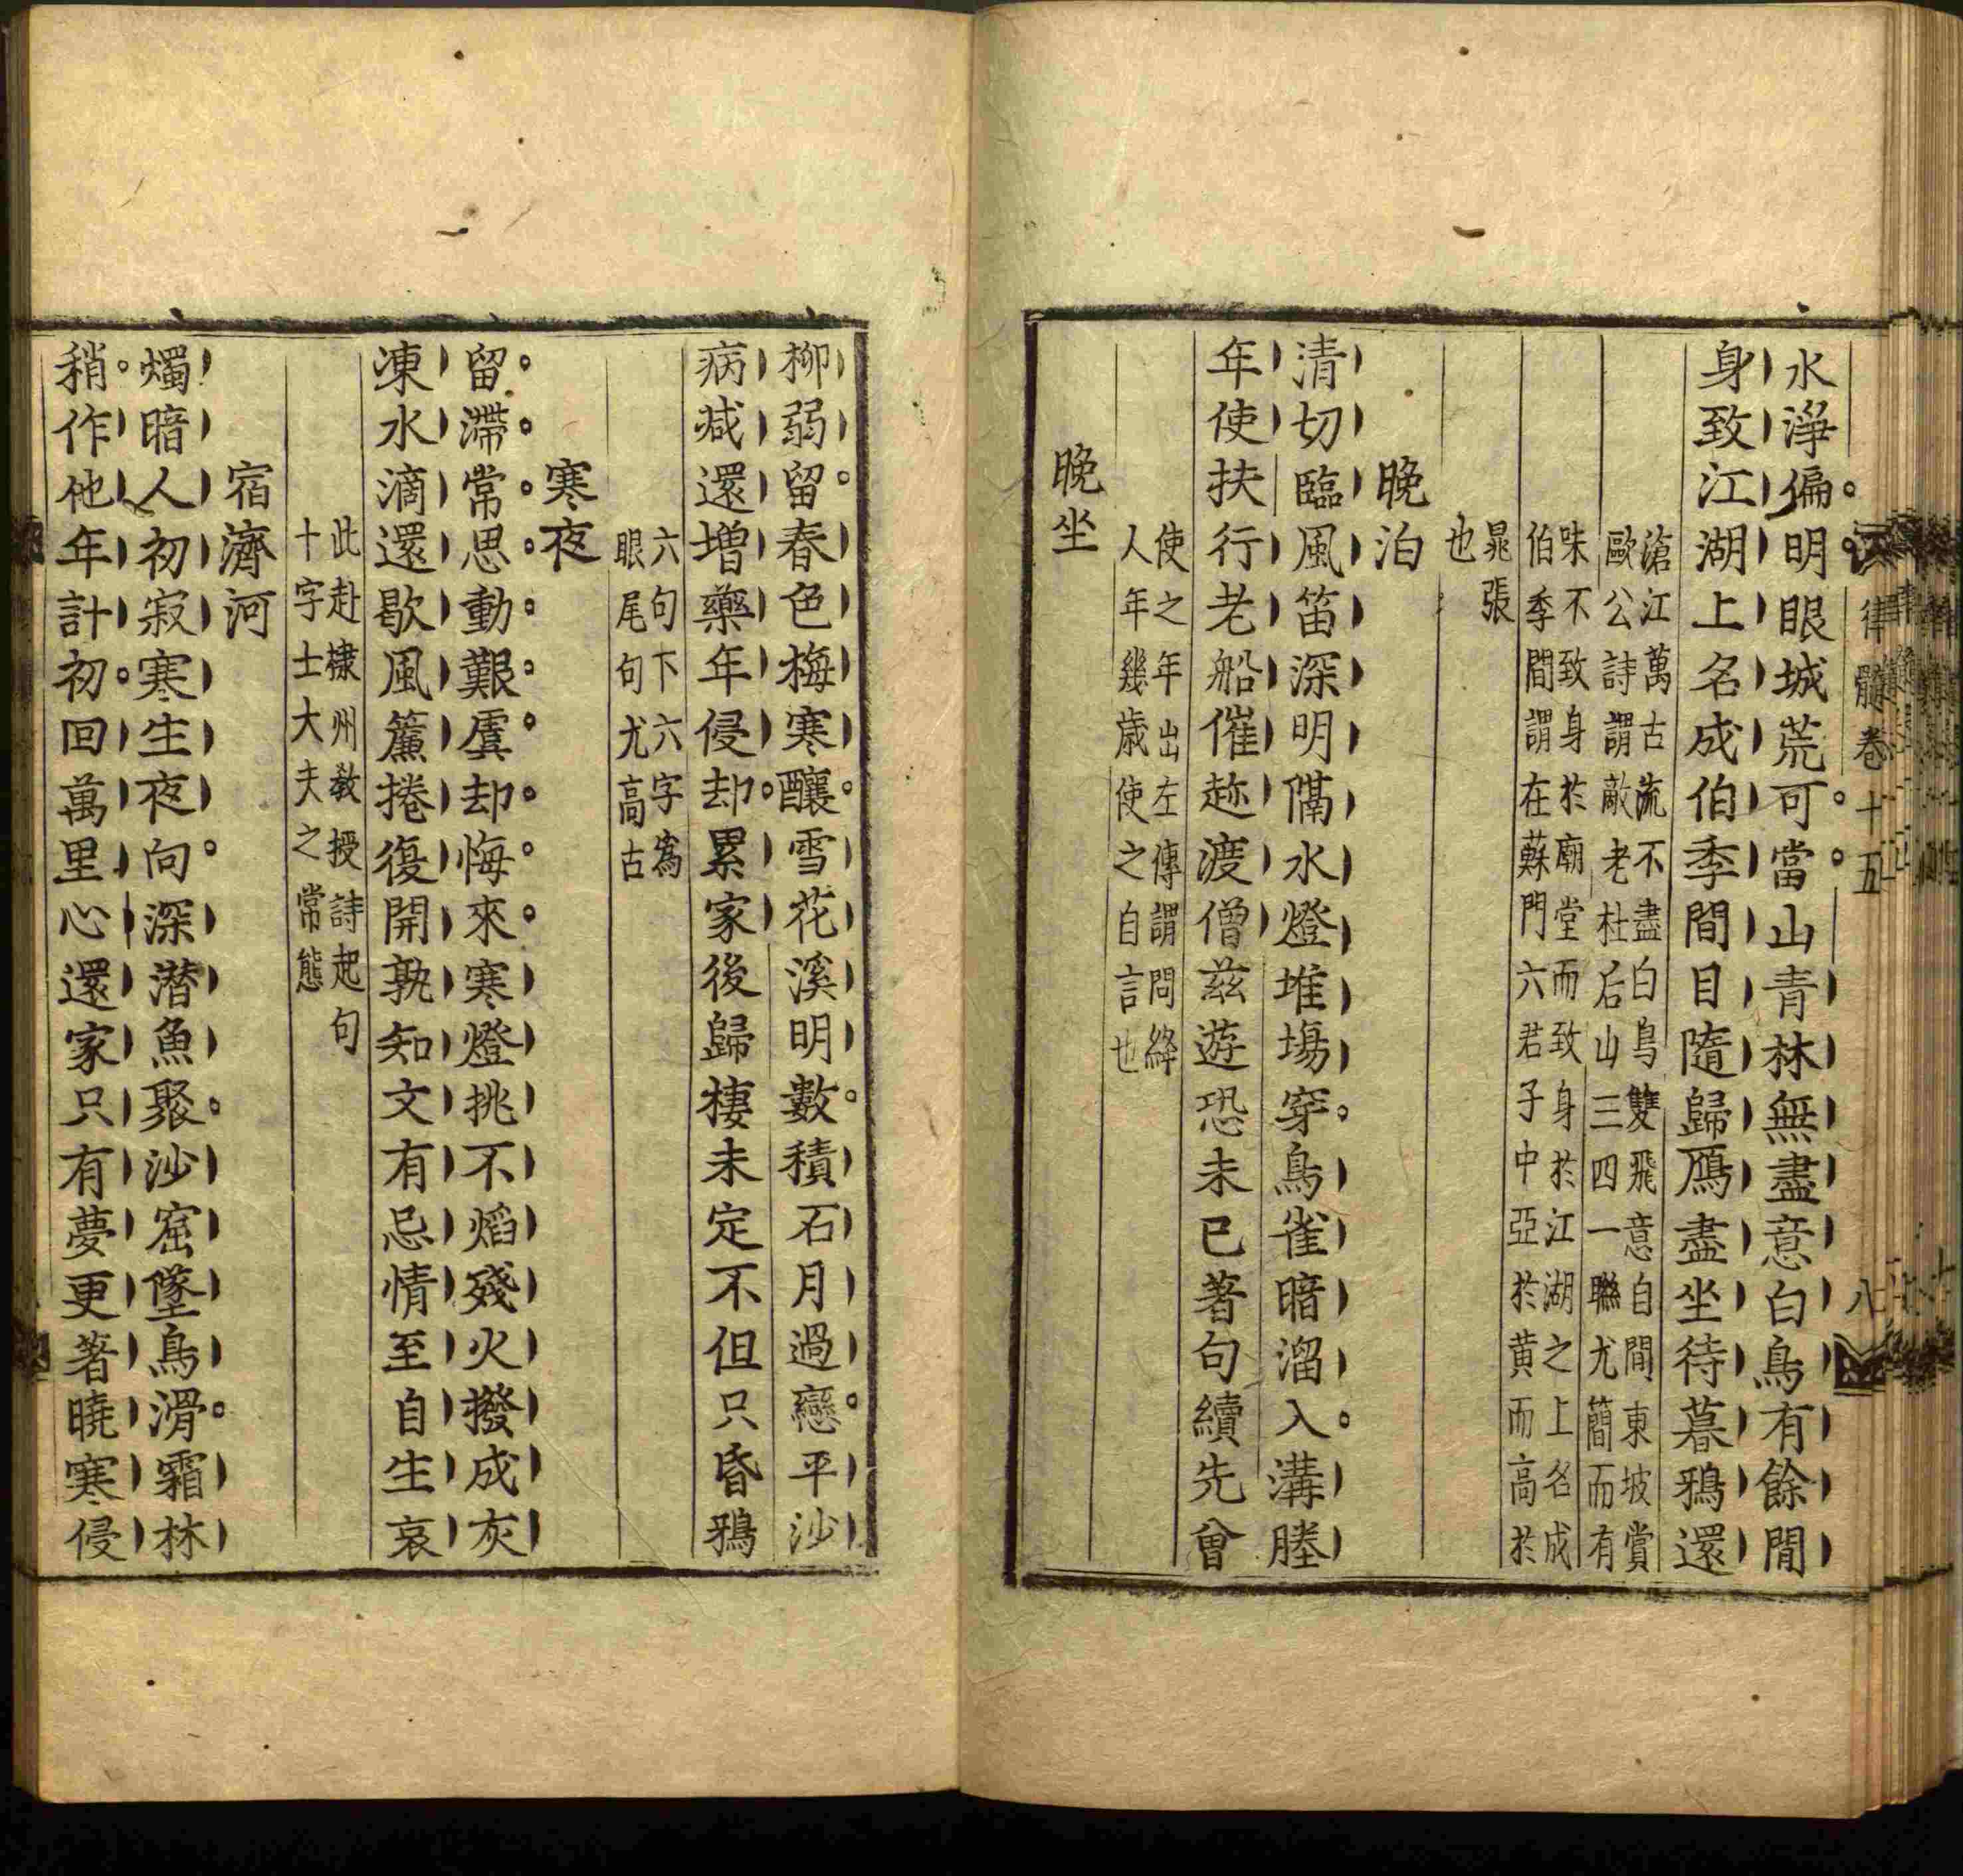 律髓卷十五
八
水淨偏明眼城荒可當山青林無盡意白鳥有餘閒
身致江湖上名成伯季間目隨歸鴈盡坐待暮鴉還
滄江萬古流不盡白鳥雙飛意自閒東坡賞
歐公詩謂敵老杜后山三四一聯尤簡而有
味不致身於廟堂而致身於江湖之上名成
伯季間謂在蘇門六君子中亞於黄而高於
晁張
也
晚泊
清切臨風笛深明隔水燈堆塲穿鳥雀暗溜入溝塍
年使扶行老船催趂渡僧茲遊恐未已著句續先曾
使之年出左傳謂問絳
人年幾歲使之自言也
晚坐
柳弱留春色梅寒釀雪花溪明數積石月過戀平沙
病減還增藥年侵却累家後歸棲未定不但只昏鴉
六句下六字為
眼尾句尤高古
寒夜
留滯常思動艱虞却悔來寒燈挑不焰殘火撥成灰
凍水滴還歇風簾捲復開孰知文有忌情至自生哀
此赴棣州教授詩起句
十字士大夫之常態
宿濟河
燭暗人初寂寒生夜向深潛魚聚沙窟墜鳥滑霜林
稍作他年計初回萬里心還家只有夢更著曉寒侵